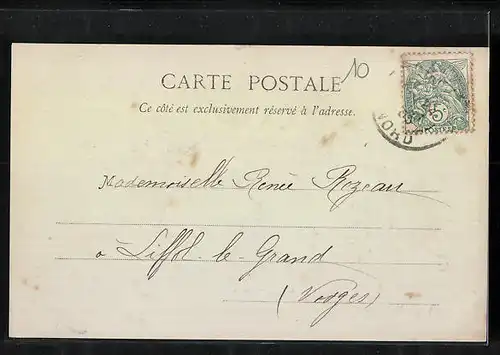 10
CARTE POSTALE
Ce côté est exclusivement réservé à l'adresse.
5
POSTES
NORD
Mademoiselle Renée Rozeau
à Liffol-le-Grand
(Vosges)